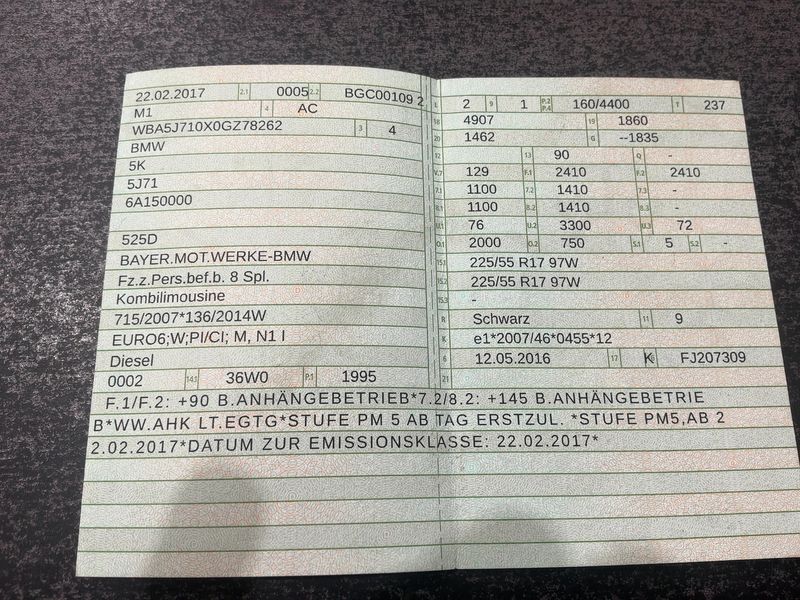 22.02.2017 2.1 0005 2.2 BGC00109 2
M1 4 AC
WBA5J710X0GZ78262 3 4
BMW
5K
5J71
6A150000
525D
BAYER.MOT.WERKE-BMW
Fz.z.Pers.bef.b. 8 Spl.
Kombilimousine
715/2007*136/2014W
EURO6;W;PI/CI; M, N1 I
Diesel
0002 14.1 36W0 P.1 1995
L 2 9 1 P.2 P.4 160/4400 T 237
18 4907 19 1860
20 1462 G --1835
12 13 90 Q -
V.7 129 F.1 2410 F.2 2410
7.1 1100 7.2 1410 7.3 -
8.1 1100 8.2 1410 8.3 -
U.1 76 U.2 3300 U.3 72
O.1 2000 O.2 750 S.1 5 S.2 -
15.1 225/55 R17 97W
15.2 225/55 R17 97W
15.3 -
R Schwarz 11 9
K e1*2007/46*0455*12
6 12.05.2016 17 K 16 FJ207309
21
F.1/F.2: +90 B.ANHÄNGEBETRIEB*7.2/8.2: +145 B.ANHÄNGEBETRIE
B*WW.AHK LT.EGTG*STUFE PM 5 AB TAG ERSTZUL. *STUFE PM5,AB 2
2.02.2017*DATUM ZUR EMISSIONSKLASSE: 22.02.2017*